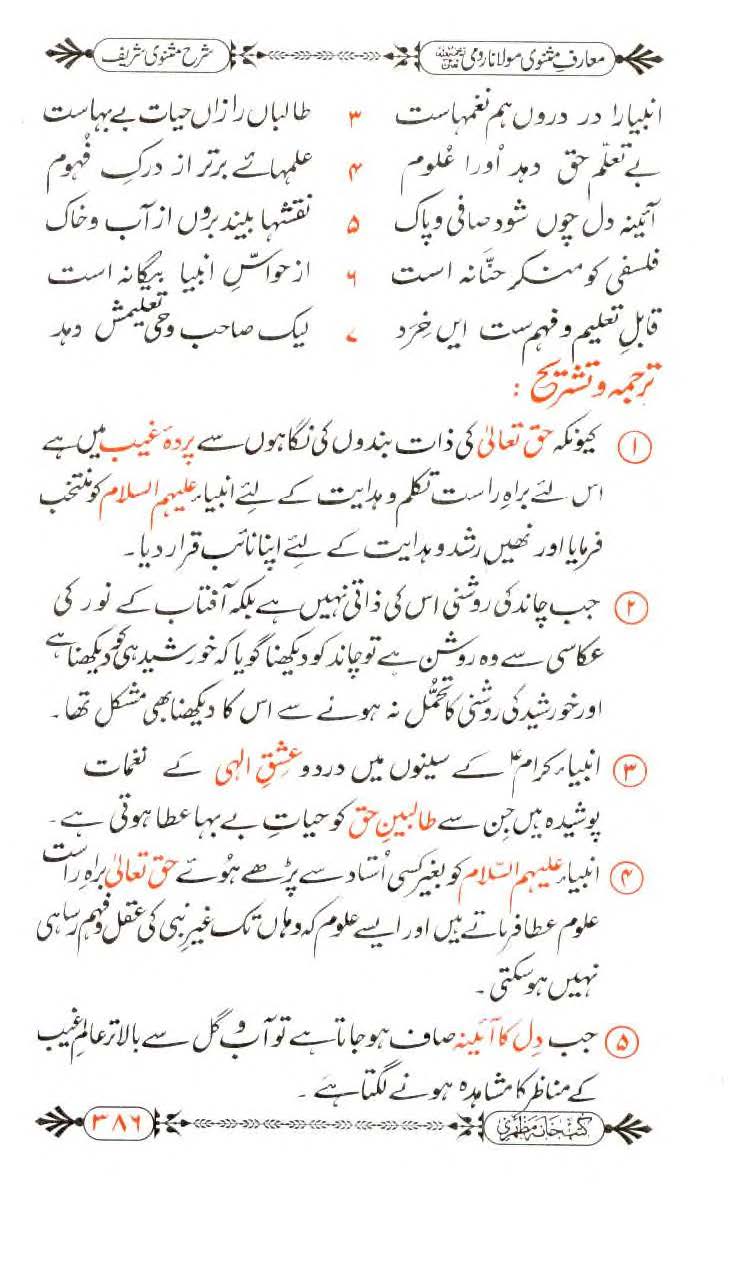 معارفِ مثنوی مولانا رومیؒ
شرح مثنوی شریف
انبیارا در دروں ہم نغمہاست ۳ طالباں را زاں حیات بے بہاست
بے تعلّم حق دہد اُورا عُلوم ۴ علمہائے برتر از درکِ فہُوم
آئینہ دل چوں شود صافی و پاک ۵ نقشہا بیند بروں از آب و خاک
فلسفی کو منکرِ حنّانہ است ۶ از حواسِّ انبیا بیگانہ است
قابلِ تعلیم و فہم ست ایں خِرَد ۷ لیک صاحب وحی تعلیمش دہد
ترجمہ و تشریح :
۱ کیونکہ حق تعالیٰ کی ذات بندوں کی نگاہوں سے پردۂ غیب میں ہے
اس لئے براہِ راست تکلم و ہدایت کے لئے انبیاء علیہم السلام کو منتخب
فرمایا اور نھیں رشد و ہدایت کے لئے اپنا نائب قرار دیا۔
۲ جب چاند کی روشنی اس کی ذاتی نہیں ہے بلکہ آفتاب کے نور کی
عکاسی سے وہ روشن ہے تو چاند کو دیکھنا گویا کہ خورشید ہی کو دیکھنا ہے
اور خورشید کی روشنی کا تحمُّل نہ ہونے سے اس کا دیکھنا بھی مشکل تھا۔
۳ انبیاء کرامؑ کے سینوں میں درد و عشقِ الٰہی کے نغمات
پوشیدہ ہیں جن سے طالبینِ حق کو حیاتِ بے بہا عطا ہوتی ہے۔
۴ انبیاء علیہم السّلام کو بغیر کسی اُستاد سے پڑھے ہُوئے حق تعالیٰ براہِ راست
علوم عطا فرماتے ہیں اور ایسے علوم کہ وہاں تک غیرِ نبی کی عقل و فہم رسا ہی
نہیں ہو سکتی۔
۵ جب دِل کا آئینہ صاف ہو جاتا ہے تو آب و گل سے بالاتر عالمِ غیب
کے مناظر کا مشاہدہ ہونے لگتا ہے۔
کتب خانہ مظہری
۳۸۶